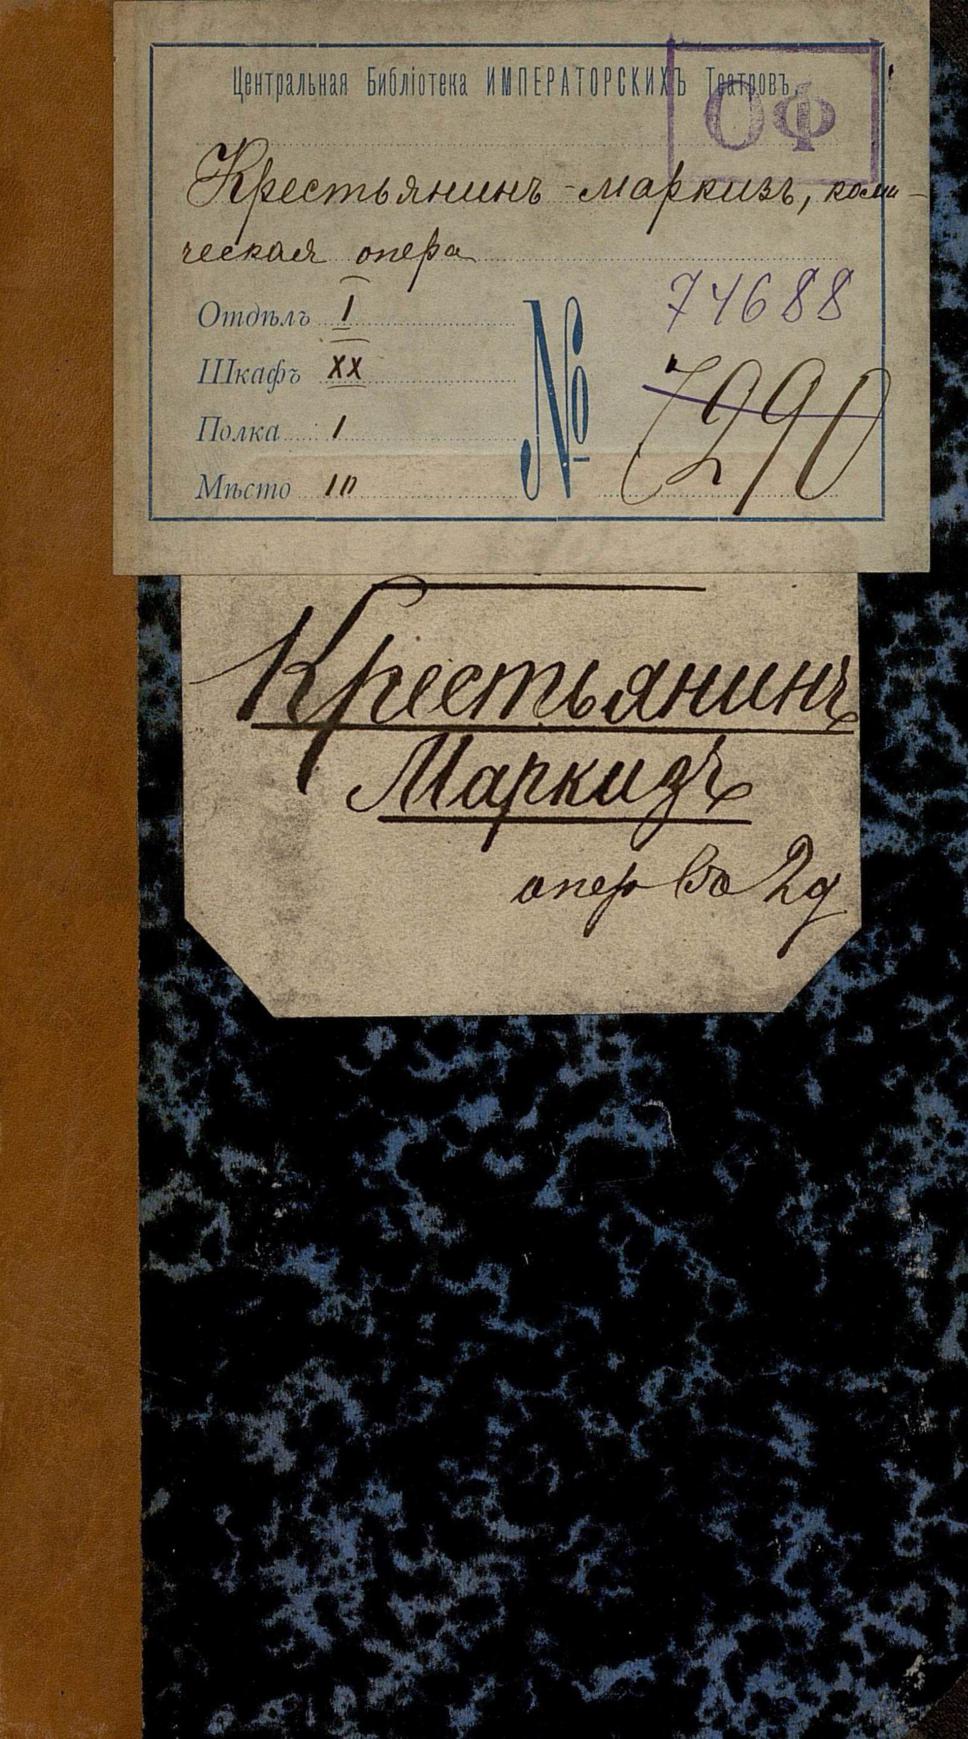 Центральная Библіотека ИМПЕРАТОРСКИХЪ Театровъ
ОФ
Крестьянинъ-маркизъ, коми-
ческая опера
74688
Отдѣлъ I
Шкафъ XX
Полка 1
Мѣсто 10
№ 7290
Крестьянинъ
Маркизъ
опер въ 2д